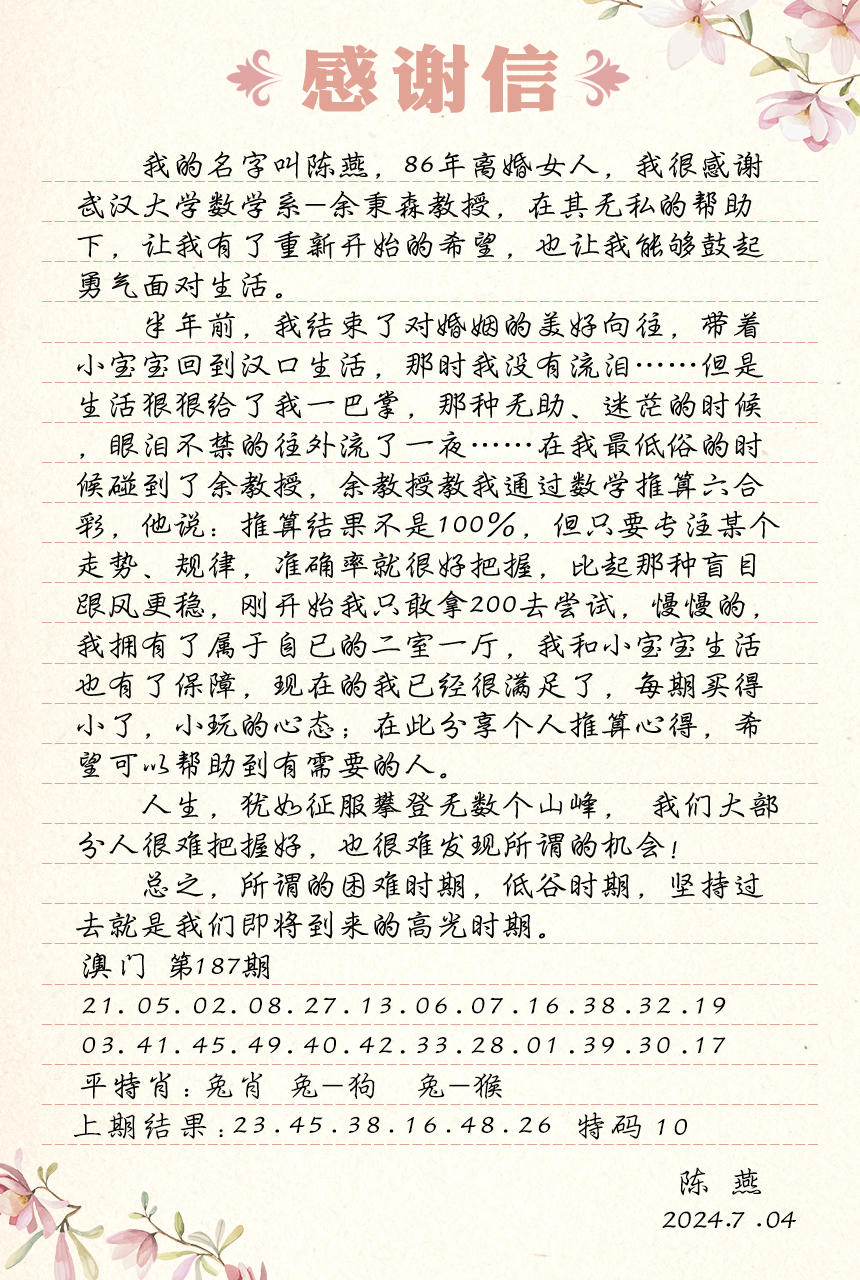 感谢信
我的名字叫陈燕，86年离婚女人，我很感谢
武汉大学数学系—余秉森教授，在其无私的帮助
下，让我有了重新开始的希望，也让我能够鼓起
勇气面对生活。
半年前，我结束了对婚姻的美好向往，带着
小宝宝回到汉口生活，那时我没有流泪……但是
生活狠狠给了我一巴掌，那种无助、迷茫的时候
，眼泪不禁的往外流了一夜……在我最低俗的时
候碰到了余教授，余教授教我通过数学推算六合
彩，他说：推算结果不是100%，但只要专注某个
走势、规律，准确率就很好把握，比起那种盲目
跟风更稳，刚开始我只敢拿200去尝试，慢慢的，
我拥有了属于自已的二室一厅，我和小宝宝生活
也有了保障，现在的我已经很满足了，每期买得
小了，小玩的心态；在此分享个人推算心得，希
望可以帮助到有需要的人。
人生，犹如征服攀登无数个山峰， 我们大部
分人很难把握好，也很难发现所谓的机会！
总之，所谓的困难时期，低谷时期，坚持过
去就是我们即将到来的高光时期。
澳门 第187期
21.05.02.08.27.13.06.07.16.38.32.19
03.41.45.49.40.42.33.28.01.39.30.17
平特肖：兔肖 兔—狗 兔—猴
上期结果：23.45.38.16.48.26 特码 10
陈 燕
2024.7.04